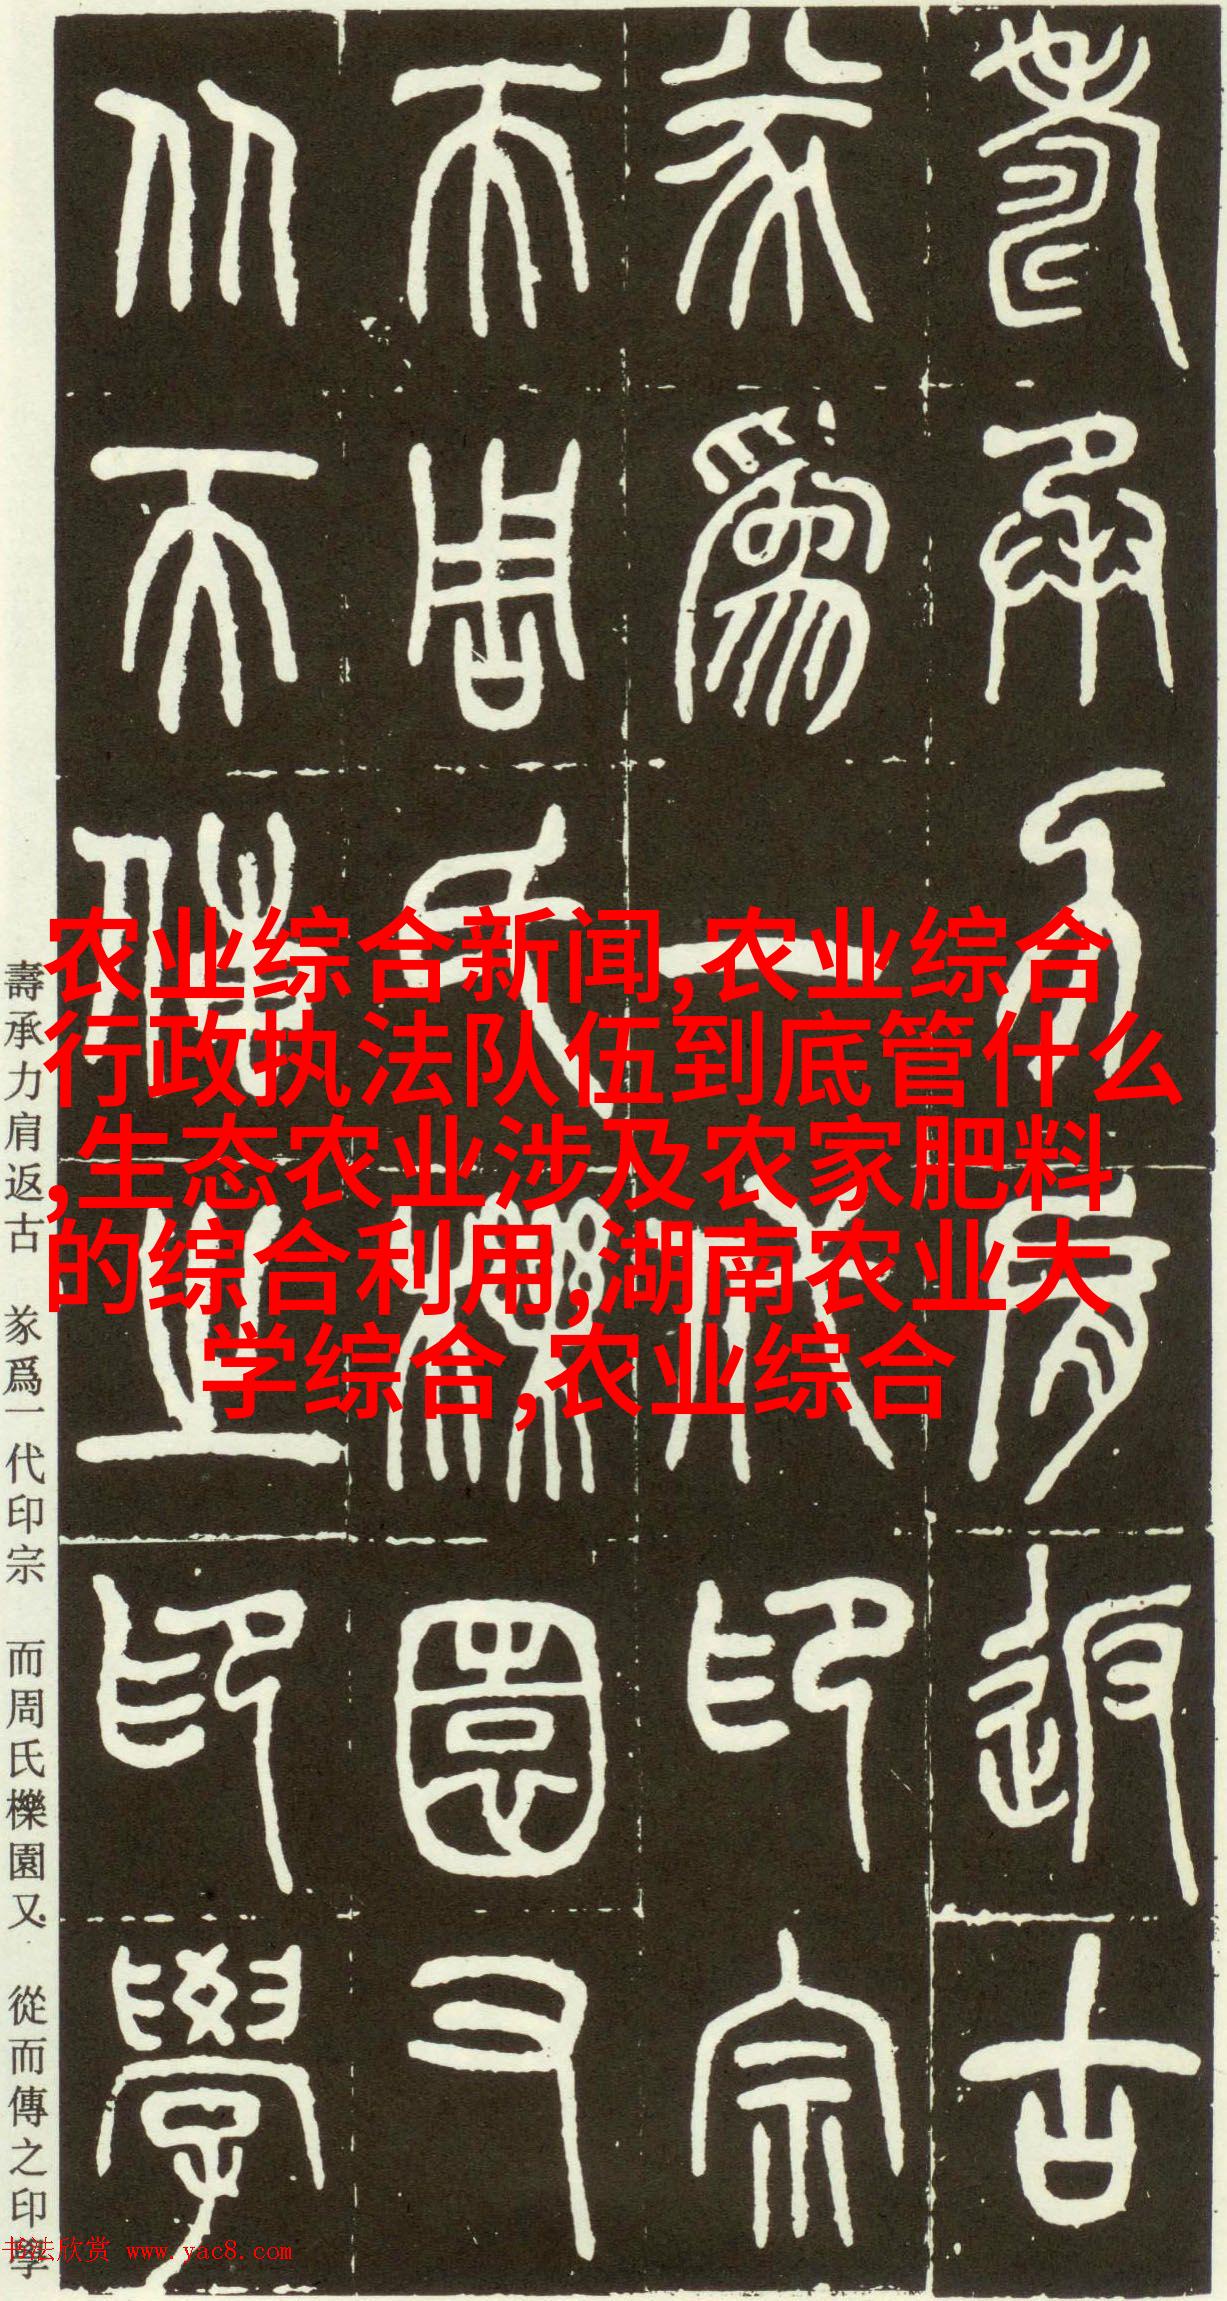 壽承力肩返古
㒸爲一代印宗
而周氏櫟園又
从而傳之印學
农业综合新闻,农业综合
行政执法队伍到底管什么
,生态农业涉及农家肥料
的综合利用,湖南农业大
学综合,农业综合
壽承力肩返古 㒸爲一代印宗 而周氏櫟園又 從而傳之印學
书法欣赏 www.yac8.com